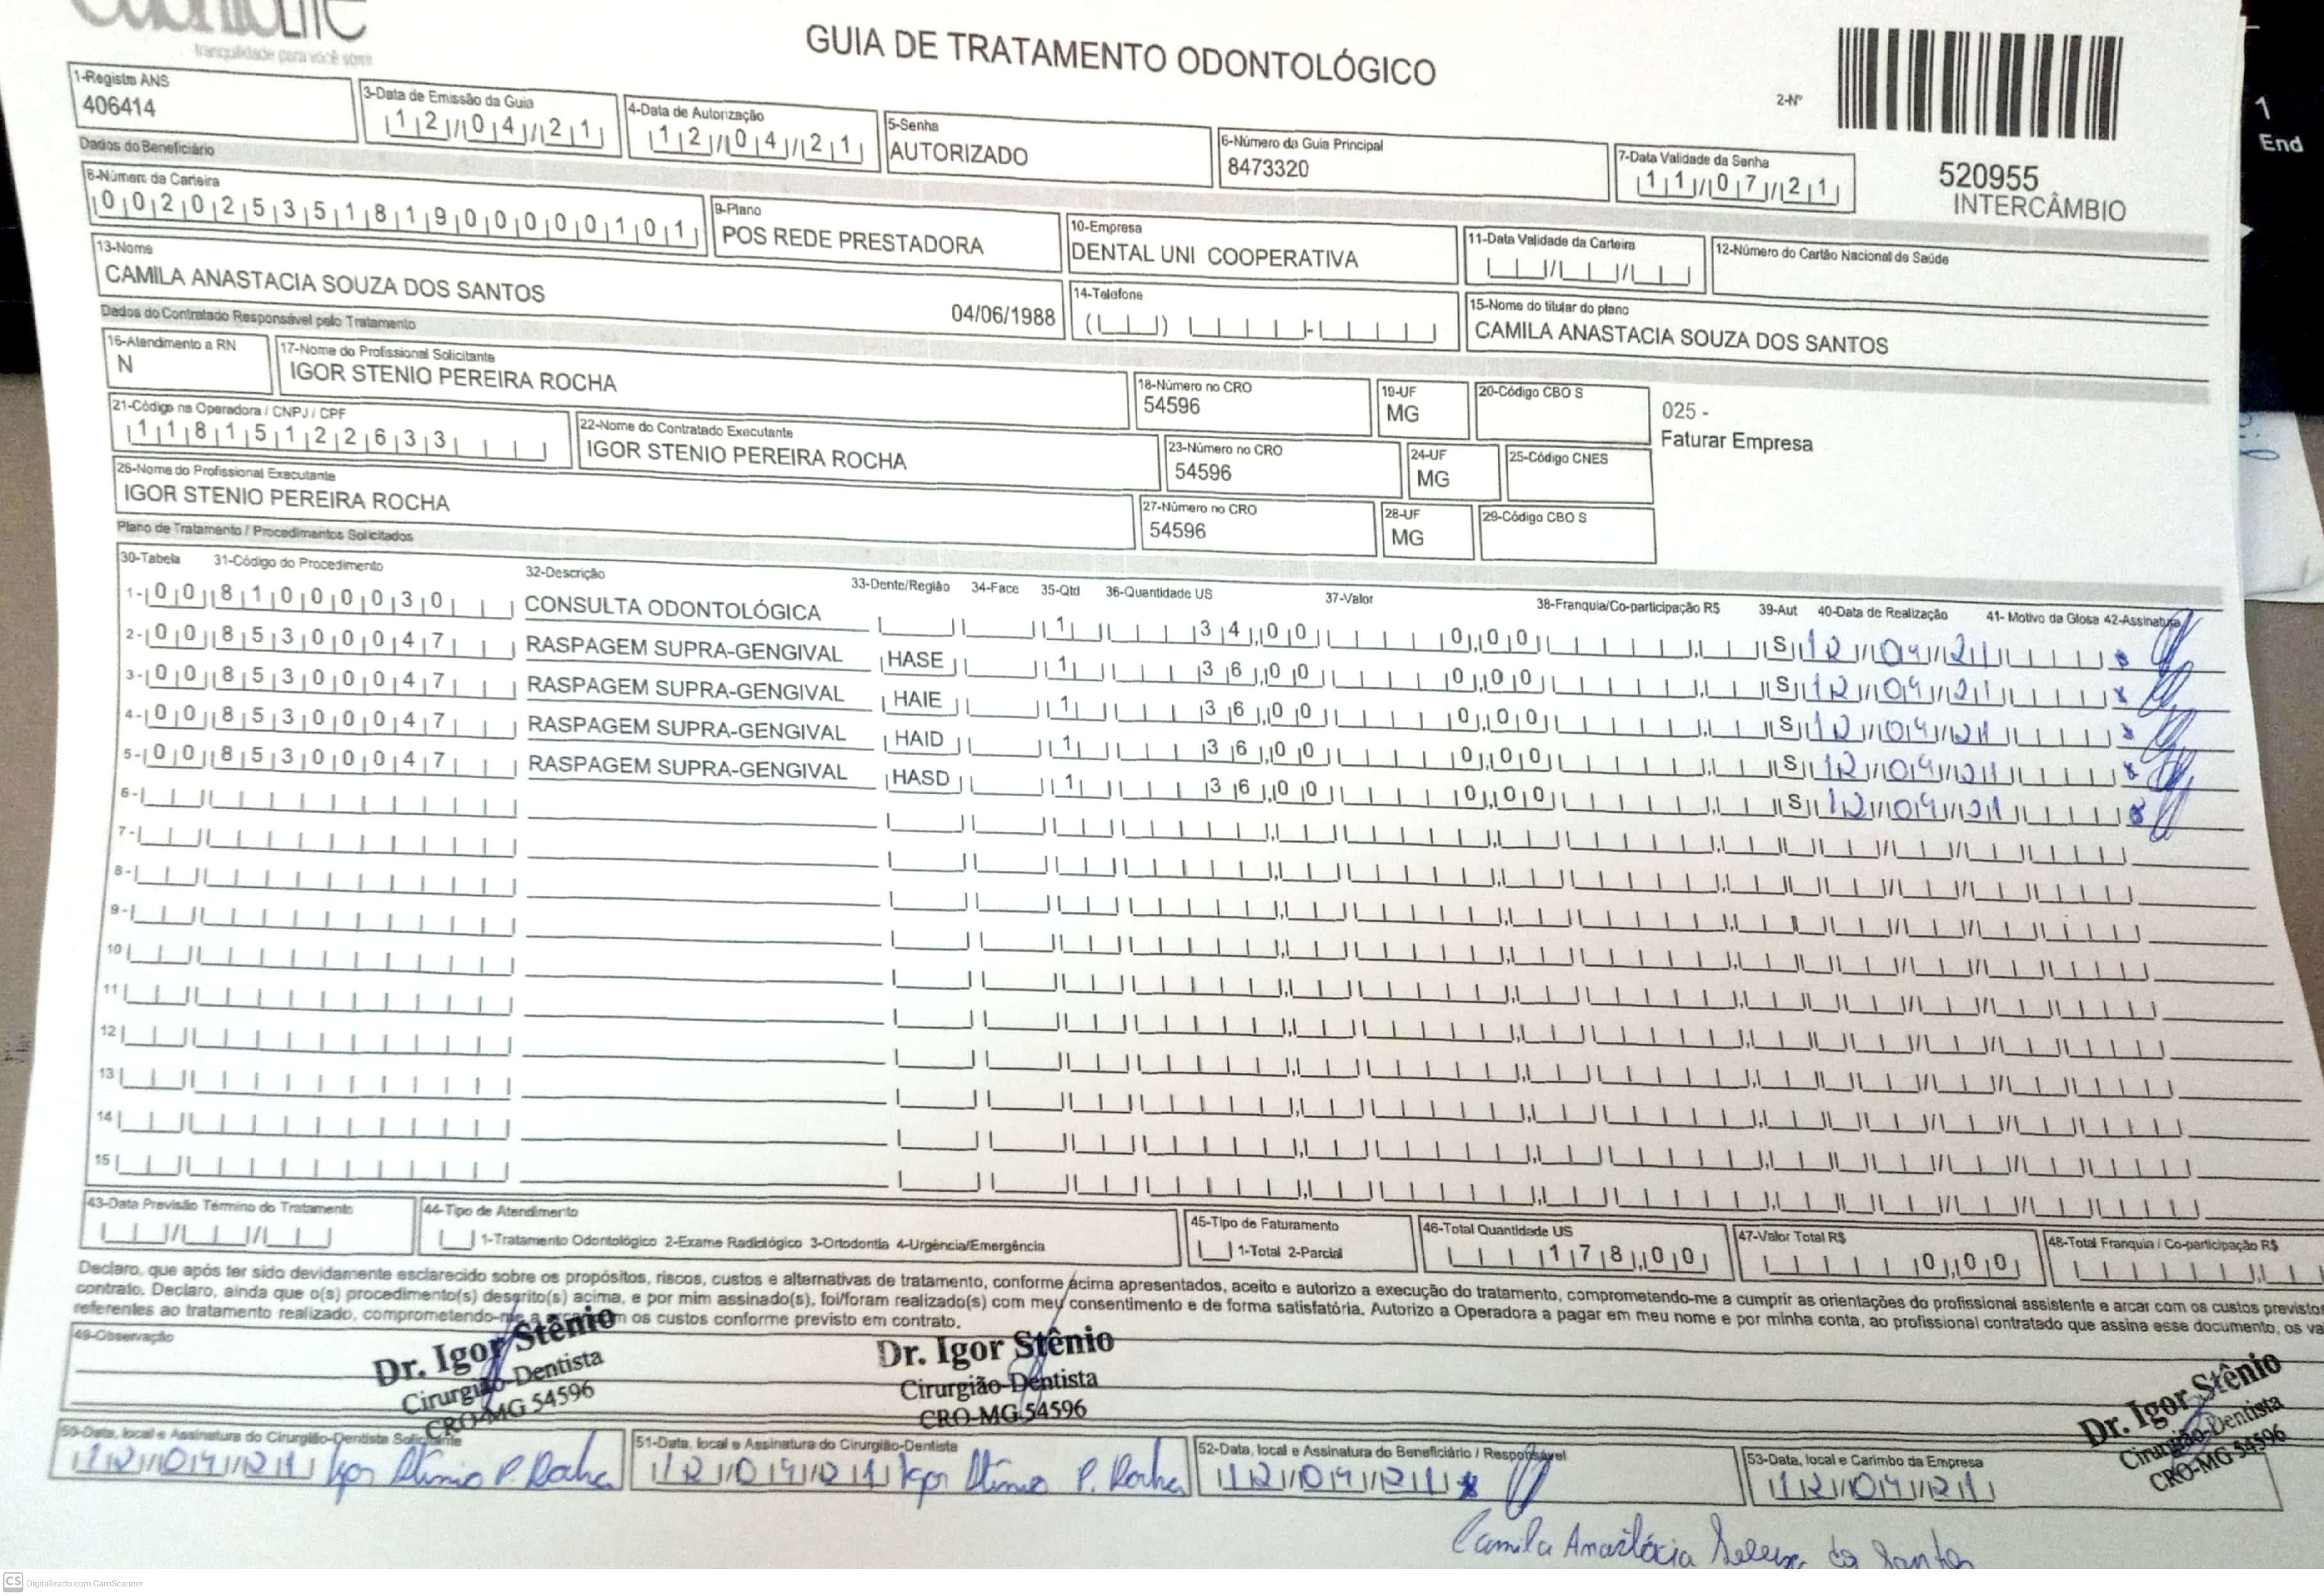 OdontoLife
tranquilidade para você sorrir
GUIA DE TRATAMENTO ODONTOLÓGICO
2-Nº
520955
INTERCÂMBIO
1-Registro ANS
406414
3-Data de Emissão da Guia
12/04/21
4-Data de Autorização
12/04/21
5-Senha
AUTORIZADO
6-Número da Guia Principal
8473320
7-Data Validade da Senha
11/07/21
Dados do Beneficiário
8-Número da Carteira
00202535181900000101
9-Plano
POS REDE PRESTADORA
10-Empresa
DENTAL UNI COOPERATIVA
11-Data Validade da Carteira
12-Número do Cartão Nacional de Saúde
13-Nome
CAMILA ANASTACIA SOUZA DOS SANTOS 04/06/1988
14-Telefone
15-Nome do titular do plano
CAMILA ANASTACIA SOUZA DOS SANTOS
Dados do Contratado Responsável pelo Tratamento
16-Atendimento a RN
N
17-Nome do Profissional Solicitante
IGOR STENIO PEREIRA ROCHA
18-Número no CRO
54596
19-UF
MG
20-Código CBO S
025 -
Faturar Empresa
21-Código na Operadora / CNPJ / CPF
11815122633
22-Nome do Contratado Executante
IGOR STENIO PEREIRA ROCHA
23-Número no CRO
54596
24-UF
MG
25-Código CNES
26-Nome do Profissional Executante
IGOR STENIO PEREIRA ROCHA
27-Número no CRO
54596
28-UF
MG
29-Código CBO S
Plano de Tratamento / Procedimentos Solicitados
30-Tabela 31-Código do Procedimento 32-Descrição 33-Dente/Região 34-Face 35-Qtd 36-Quantidade US 37-Valor 38-Franquia/Co-participação R$ 39-Aut 40-Data de Realização 41- Motivo da Glosa 42-Assinatura
1- 00 81000030 CONSULTA ODONTOLÓGICA 1 34,00 0,00 S 12/04/21
2- 00 85300047 RASPAGEM SUPRA-GENGIVAL HASE 1 36,00 0,00 S 12/04/21
3- 00 85300047 RASPAGEM SUPRA-GENGIVAL HAIE 1 36,00 0,00 S 12/04/21
4- 00 85300047 RASPAGEM SUPRA-GENGIVAL HAID 1 36,00 0,00 S 12/04/21
5- 00 85300047 RASPAGEM SUPRA-GENGIVAL HASD 1 36,00 0,00 S 12/04/21
6-
7-
8-
9-
10
11
12
13
14
15
43-Data Previsão Término do Tratamento
44-Tipo de Atendimento
1-Tratamento Odontológico 2-Exame Radiológico 3-Ortodontia 4-Urgência/Emergência
45-Tipo de Faturamento
1-Total 2-Parcial
46-Total Quantidade US
178,00
47-Valor Total R$
0,00
48-Total Franquia / Co-participação R$
Declaro, que após ter sido devidamente esclarecido sobre os propósitos, riscos, custos e alternativas de tratamento, conforme acima apresentados, aceito e autorizo a execução do tratamento, comprometendo-me a cumprir as orientações do profissional assistente e arcar com os custos previstos
contrato. Declaro, ainda que o(s) procedimento(s) descrito(s) acima, e por mim assinado(s), foi/foram realizado(s) com meu consentimento e de forma satisfatória. Autorizo a Operadora a pagar em meu nome e por minha conta, ao profissional contratado que assina esse documento, os va
referentes ao tratamento realizado, comprometendo-me a os custos conforme previsto em contrato.
49-Observação
Dr. Igor Stênio
Cirurgião-Dentista
CRO-MG 54596
Dr. Igor Stênio
Cirurgião-Dentista
CRO-MG 54596
Dr. Igor Stênio
Cirurgião-Dentista
CRO-MG 54596
50-Data, local e Assinatura do Cirurgião-Dentista Solicitante
12/04/21 Igor Stênio P. Rocha
51-Data, local e Assinatura do Cirurgião-Dentista
12/04/21 Igor Stênio P. Rocha
52-Data, local e Assinatura do Beneficiário / Responsável
12/04/21
53-Data, local e Carimbo da Empresa
12/04/21
Camila Anastácia Souza dos Santos
1
End
CS Digitalizado com CamScanner